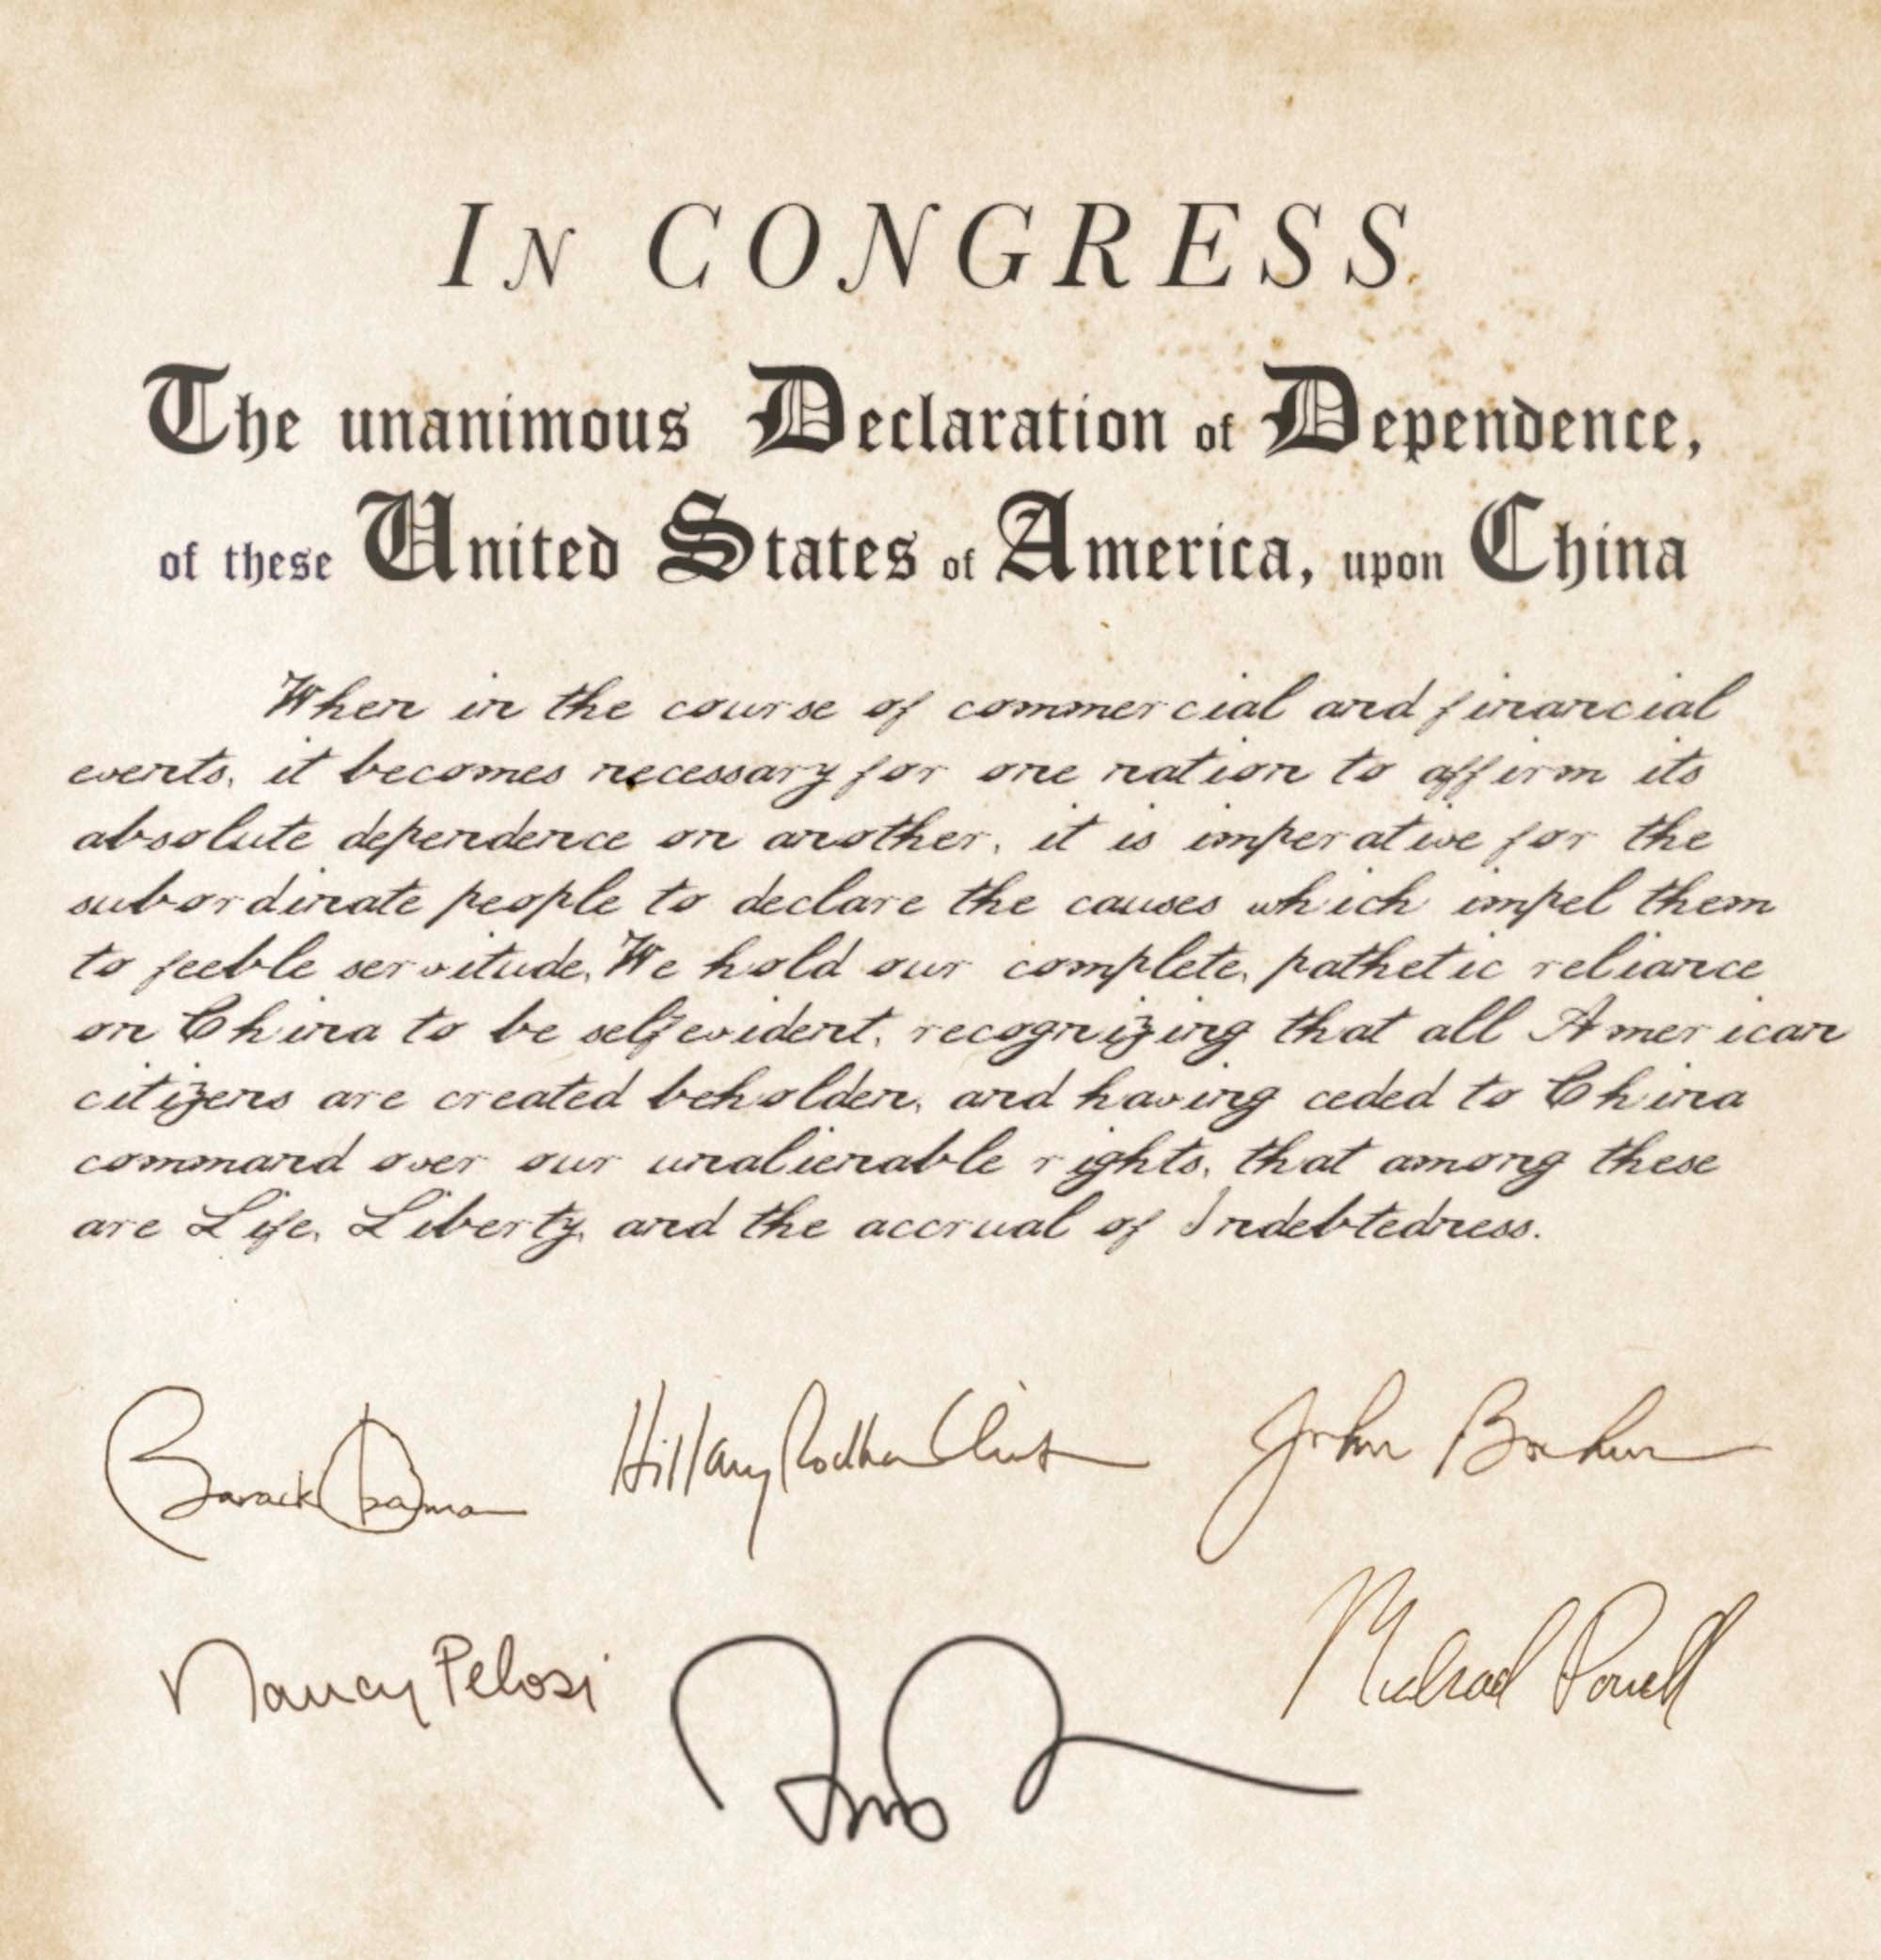 In CONGRESS.
The unanimous Declaration of Dependence,
of these United States of America, upon China
When in the course of commercial and financial
events, it becomes necessary for one nation to affirm its
absolute dependence on another, it is imperative for the
subordinate people to declare the causes which impel them
to feeble servitude. We hold our complete, pathetic reliance
on China to be self evident, recognizing that all American
citizens are created beholden, and having ceded to China
command over our unalienable rights, that among these
are Life, Liberty, and the accrual of Indebtedness.
Barack Obama Hillary Rodham Clinton John Boehner
Nancy Pelosi Michael Powell